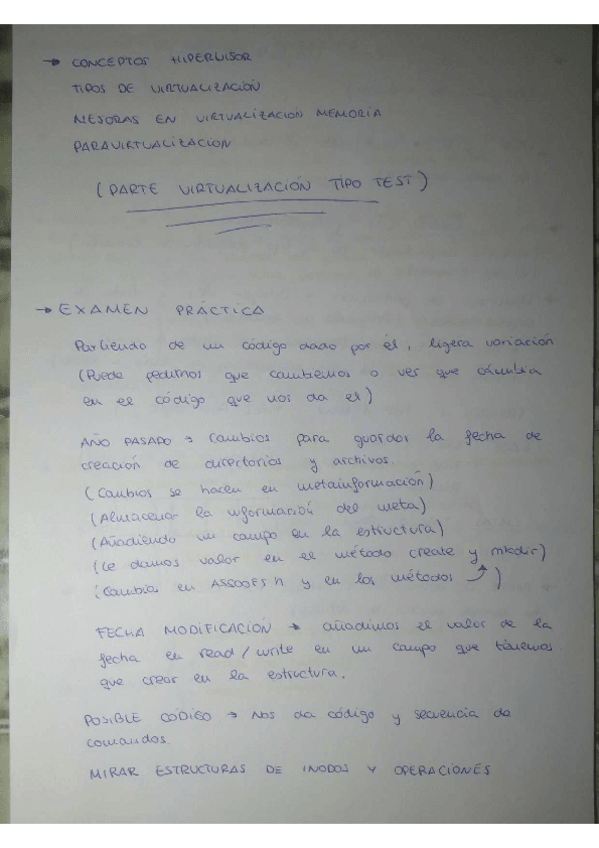 → CONCEPTOS HIPERVISOR
TIPOS DE VIRTUALIZACIÓN
MEJORAS EN VIRTUALIZACION MEMORIA
PARAVIRTUALIZACION
(PARTE VIRTUALIZACIÓN TIPO TEST)
→ EXAMEN PRÁCTICA
Partiendo de un código dado por él, ligera variación
(Puede pedirnos que cambiemos o ver que cambia
en el código que nos da el)
AÑO PASADO → Cambios para guardar la fecha de
creación de directorios y archivos.
(Cambios se hacen en metainformación)
(Almacenar la información del meta)
(Añadiendo un campo en la estructura)
(Le damos valor en el método create y mkdir)
(Cambia en ASSOOFS h y en los métodos)
FECHA MODIFICACIÓN → añadimos el valor de la
fecha en read/write en un campo que tenemos
que crear en la estructura.
POSIBLE CÓDIGO → Nos da código y secuencia de
comandos.
MIRAR ESTRUCTURAS DE INODOS Y OPERACIONES